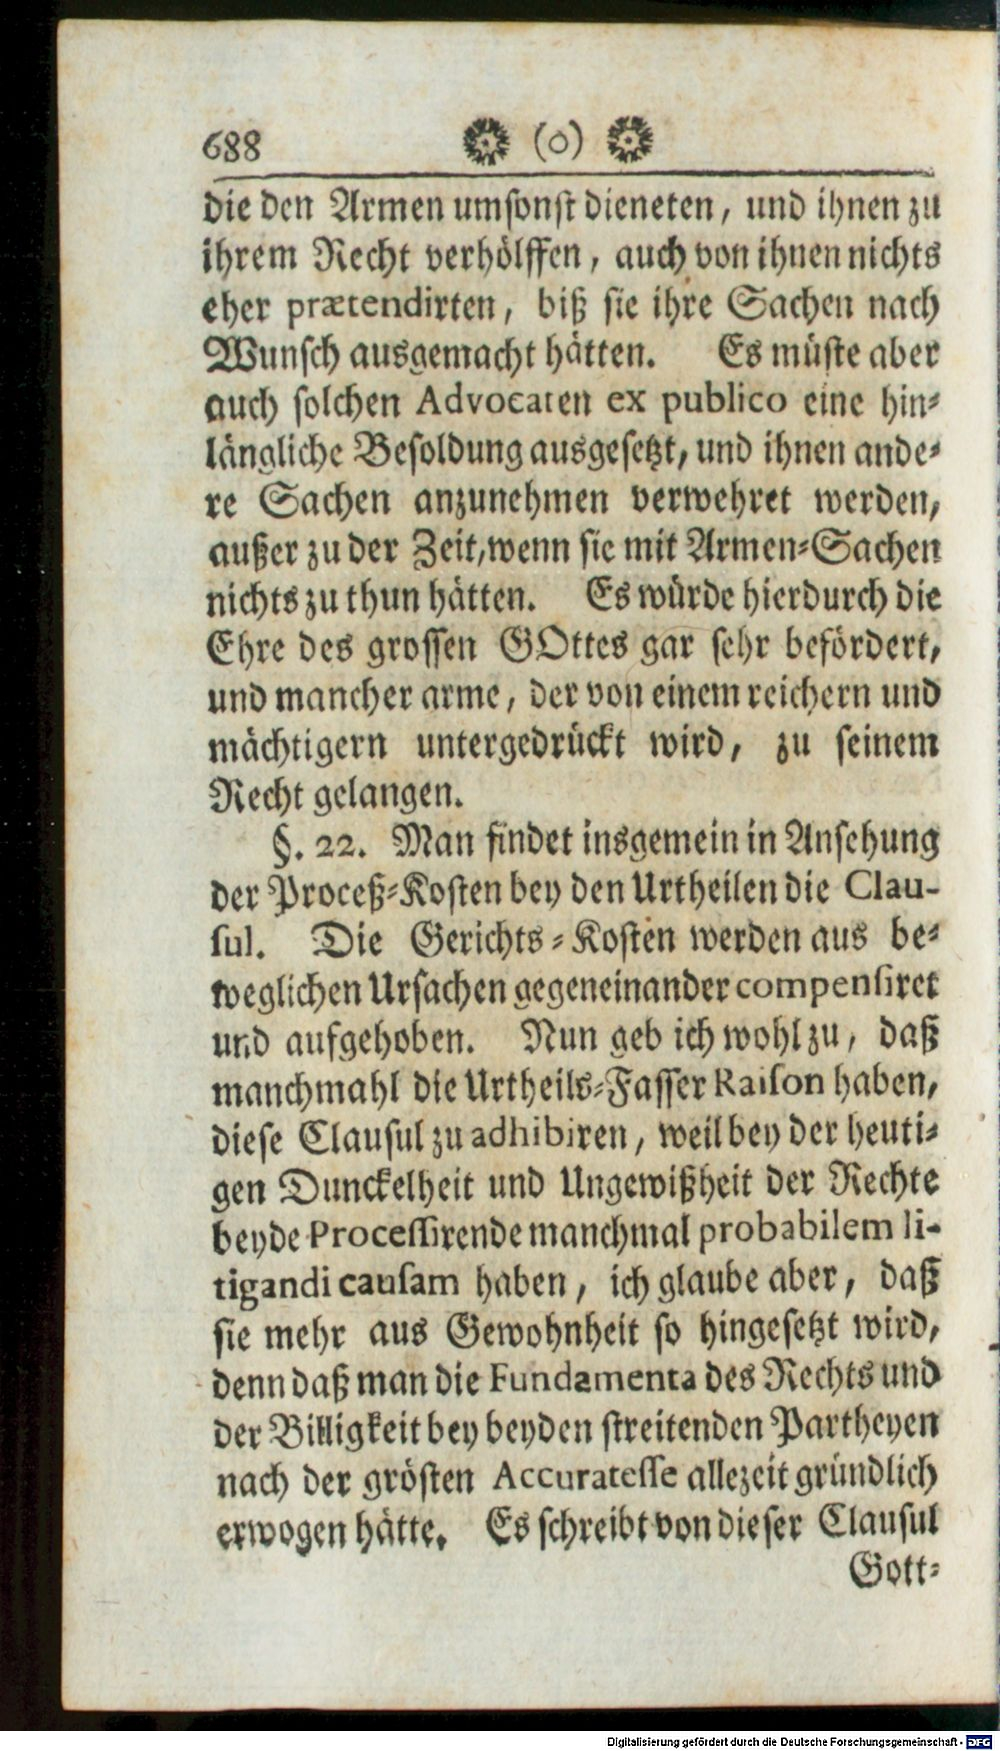 688 (o)
die den Armen umsonst dieneten, und ihnen zu
ihrem Recht verhölffen, auch von ihnen nichts
eher prætendirten, biß sie ihre Sachen nach
Wunsch ausgemacht hätten. Es müste aber
auch solchen Advocaten ex publico eine hin-
längliche Besoldung ausgesetzt, und ihnen ande-
re Sachen anzunehmen verwehret werden,
außer zu der Zeit, wenn sie mit Armen-Sachen
nichts zu thun hätten. Es würde hierdurch die
Ehre des grossen GOttes gar sehr befördert,
und mancher arme, der von einem reichern und
mächtigern untergedrückt wird, zu seinem
Recht gelangen.
§. 22. Man findet insgemein in Ansehung
der Proceß-Kosten bey den Urtheilen die Clau-
sul. Die Gerichts-Kosten werden aus be-
weglichen Ursachen gegeneinander compensiret
und aufgehoben. Nun geb ich wohl zu, daß
manchmahl die Urtheils-Fasser Raison haben,
diese Clausul zu adhibiren, weil bey der heuti-
gen Dunckelheit und Ungewißheit der Rechte
beyde Processirende manchmal probabilem li-
tigandi causam haben, ich glaube aber, daß
sie mehr aus Gewohnheit so hingesetzt wird,
denn daß man die Fundamenta des Rechts und
der Billigkeit bey beyden streitenden Partheyen
nach der grösten Accuratesse allezeit gründlich
erwogen hätte. Es schreibt von dieser Clausul
Gott-
Digitalisierung gefördert durch die Deutsche Forschungsgemeinschaft - DFG